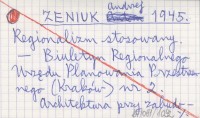 ZENIUK andrzej 1945.
Regionalizm stosowany.
— Biuletyn Regionalnego
Urzędu Planowania Przestrzen
nego (Kraków) nr. 2.
architektura przy zabudo-